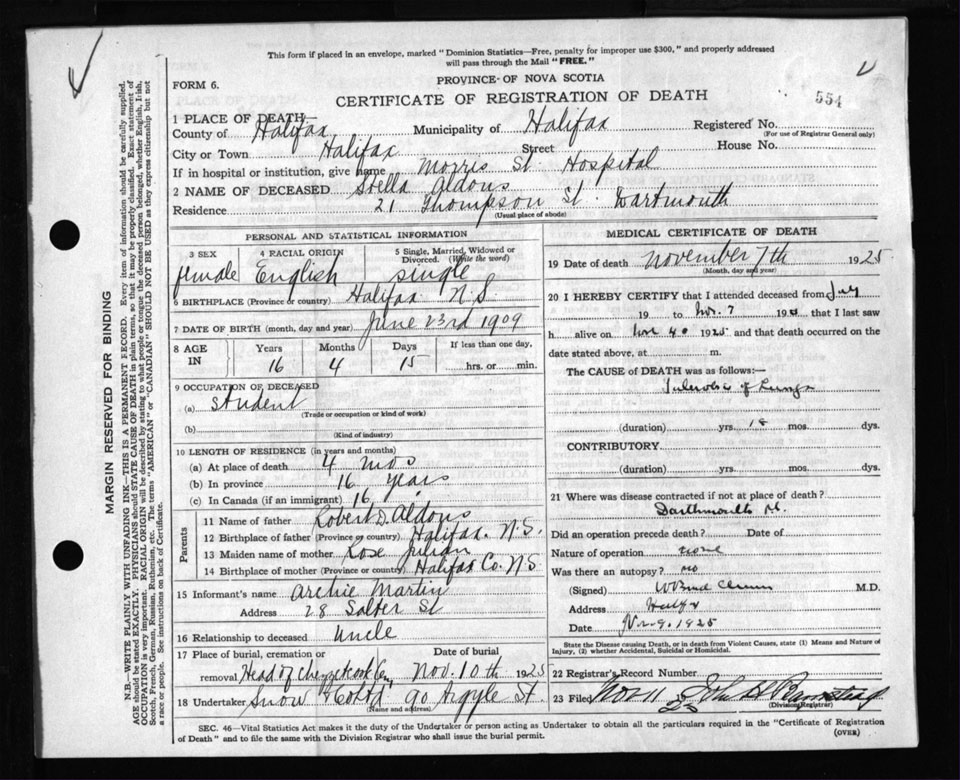 This form if placed in an envelope, marked "Dominion Statistics—Free, penalty for improper use $300," and properly addressed
will pass through the Mail "FREE."
FORM 6.
PROVINCE OF NOVA SCOTIA
CERTIFICATE OF REGISTRATION OF DEATH
554
1 PLACE OF DEATH—
County of Halifax Municipality of Halifax Registered No.
(For use of Registrar General only)
City or Town Halifax Street House No.
If in hospital or institution, give name Morris St. Hospital
2 NAME OF DECEASED Stella Aldous
Residence 21 Thompson St. Dartmouth
(Usual place of abode)
PERSONAL AND STATISTICAL INFORMATION
3 SEX female
4 RACIAL ORIGIN English
5 Single, Married, Widowed or Divorced. (Write the word) single
6 BIRTHPLACE (Province or country) Halifax N.S.
7 DATE OF BIRTH (month, day and year) June 23rd 1909
8 AGE IN Years 16 Months 4 Days 15 If less than one day, hrs. or min.
9 OCCUPATION OF DECEASED
(a) student
(Trade or occupation or kind of work)
(b)
(Kind of industry)
10 LENGTH OF RESIDENCE (in years and months)
(a) At place of death 4 mos
(b) In province 16 years
(c) In Canada (if an immigrant) 16
Parents
11 Name of father Robert D. Aldous
12 Birthplace of father (Province or country) Halifax. N.S.
13 Maiden name of mother Rose Julian
14 Birthplace of mother (Province or country) Halifax Co. N.S
15 Informant's name Archie Martin
Address 28 Salter St
16 Relationship to deceased Uncle
17 Place of burial, cremation or removal Head of Chezzetcook Cem. Date of burial Nov. 10th 1925
18 Undertaker Snow Co Ltd 90 Argyle St.
(Name and address)
MEDICAL CERTIFICATE OF DEATH
19 Date of death November 7th 1925
(Month, day and year)
20 I HEREBY CERTIFY that I attended deceased from July
19 to Nov. 7 192 , that I last saw
h alive on Nov 1925 and that death occurred on the
date stated above, at m.
The CAUSE of DEATH was as follows:—
Tuberculosis of Lungs
(duration) yrs. 18 mos. dys.
CONTRIBUTORY.
(duration) yrs. mos. dys.
21 Where was disease contracted if not at place of death?
Dartmouth
Did an operation precede death? Date of
Nature of operation none
Was there an autopsy? no
(Signed) M.D.
Address Halifax
Date Nov. 9. 1925
State the Disease causing Death, or in death from Violent Causes, state (1) Means and Nature of
Injury, (2) whether Accidental, Suicidal or Homicidal.
22 Registrar's Record Number
23 Filed Nov 11 25 John H.
(Division Registrar)
SEC. 46—Vital Statistics Act makes it the duty of the Undertaker or person acting as Undertaker to obtain all the particulars required in the "Certificate of Registration
of Death" and to file the same with the Division Registrar who shall issue the burial permit.
(OVER)
MARGIN RESERVED FOR BINDING
N.B.—WRITE PLAINLY WITH UNFADING INK—THIS IS A PERMANENT RECORD. Every item of information should be carefully supplied.
AGE should be stated EXACTLY. PHYSICIANS should STATE CAUSE OF DEATH in plain terms, so that it may be properly classified. Exact statement of
OCCUPATION is very important. RACIAL ORIGIN will be described by stating to what people or tongue the deceased person belonged, whether English, Irish,
Scotch, French, German, Russian, Ruthenian, etc. The terms "AMERICAN" or "CANADIAN" SHOULD NOT BE USED as they express citizenship but not
a race or people. See instructions on back of Certificate.